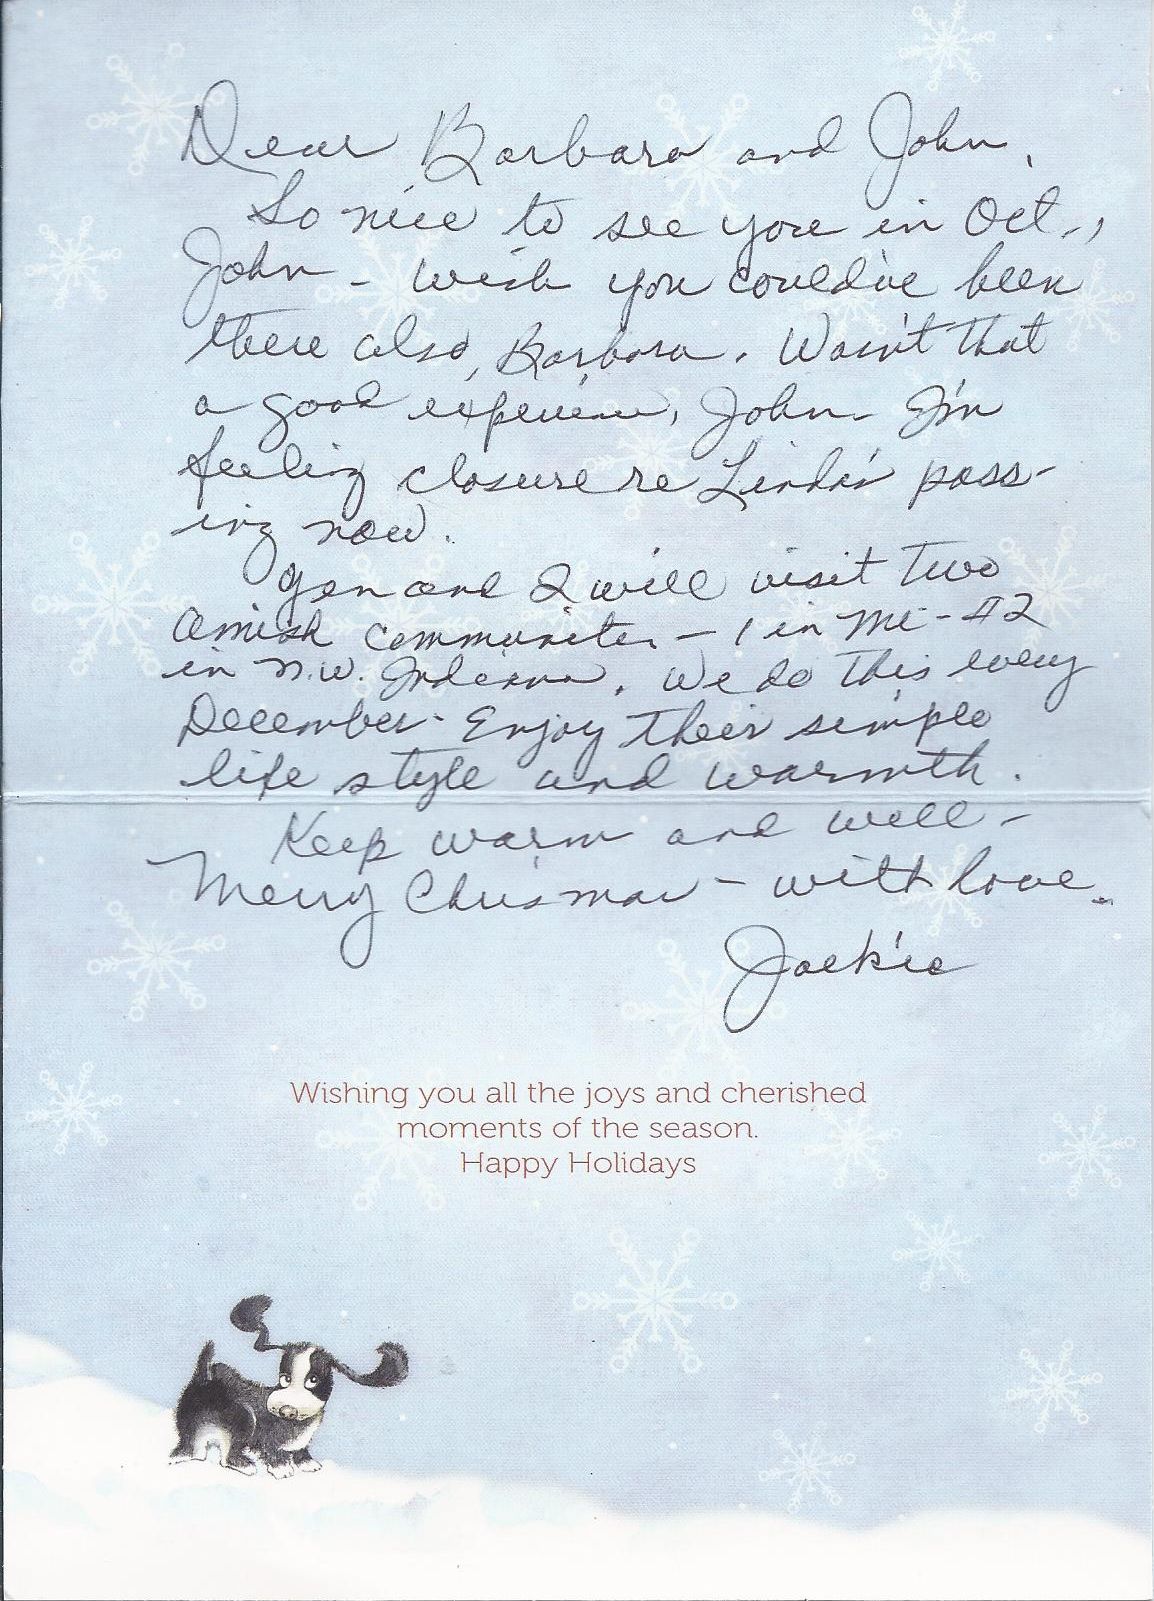 Dear Barbara and John,
So nice to see you in Oct.,
John - wish you could've been
there also, Barbara. Wasn't that
a good experience, John - I'm
feeling closure re Linda's pass-
ing now.
Gen and I will visit two
Amish communites - 1 in MI - #2
in N.W. Indiana. We do this every
December - Enjoy their simple
life style and warmth.
Keep warm and well -
Merry Chrismas - with love.
Jackie
Wishing you all the joys and cherished
moments of the season.
Happy Holidays